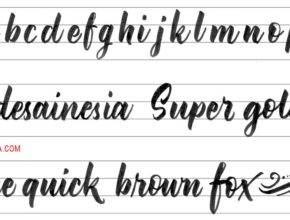 b c d e f g h i j k l m n o p
desainesia Super gol
A.COM
e quick brown fox